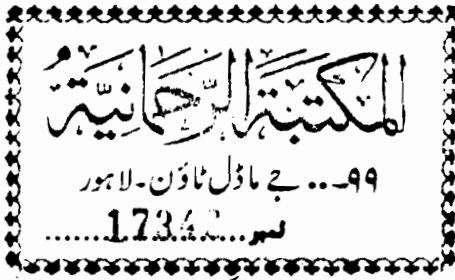 المكتبة الرحمانية
۹۹... جے ماڈل ٹاؤن۔ لاہور
نمبر...1734.......